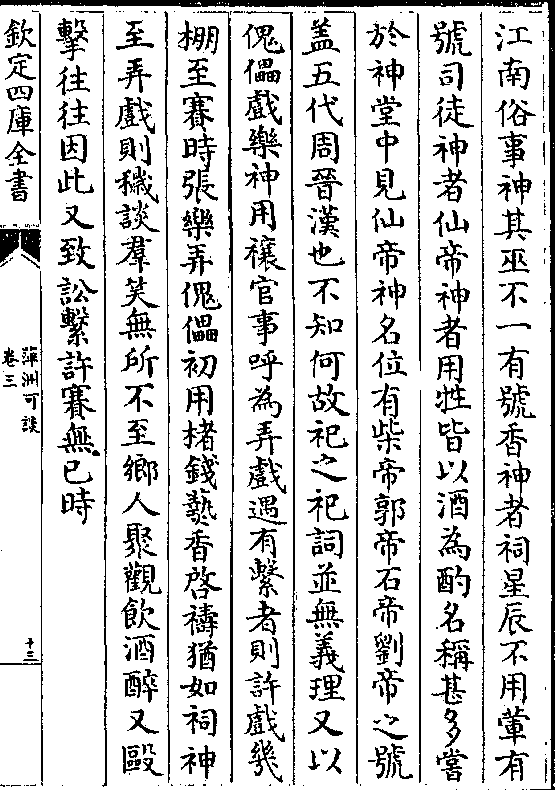 江南俗事神其巫不一有號香神者祠星辰不用葷有
號司徒神者仙帝神者用牲皆以酒為酌名稱甚多嘗
於神堂中見仙帝神名位有柴帝郭帝石帝劉帝之號
盖五代周晉漢也不知何故祀之祀詞並無義理又以
傀儡戲樂神用禳官事呼為弄戲遇有繫者則許戲幾
棚至賽時張樂弄傀儡初用楮錢爇香啓禱猶如祠神
至弄戲則穢談羣笑無所不至鄉人聚觀飲酒醉又毆
擊往往因此又致訟繫許賽無已時
欽定四庫全書
萍洲可談
卷三
十三